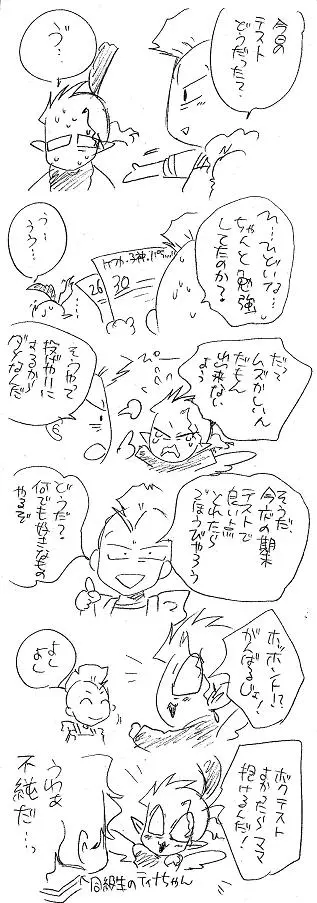 今日の
テスト
どうだった？
ゔ…
ひ…ひどいな…
ちゃんと勉強
してたのか？
26
30
う…
うう…
だって
ムズかしいん
だもん
出来ない
よう
ぴ〜
そうやって
投げやりに
するから
ダメなんだ
そうだ
今度の期末
テストで
良い点
とれたら
ごほうびやろう
どうだ？
何でも好きなもの
やるぞ
ホッホント!?
がんばるじょ！
よし
よし
ボクテスト
すかったらママ
抱けるんだ！
うわぁ
不純だ…っ
↑同級生のティナちゃん